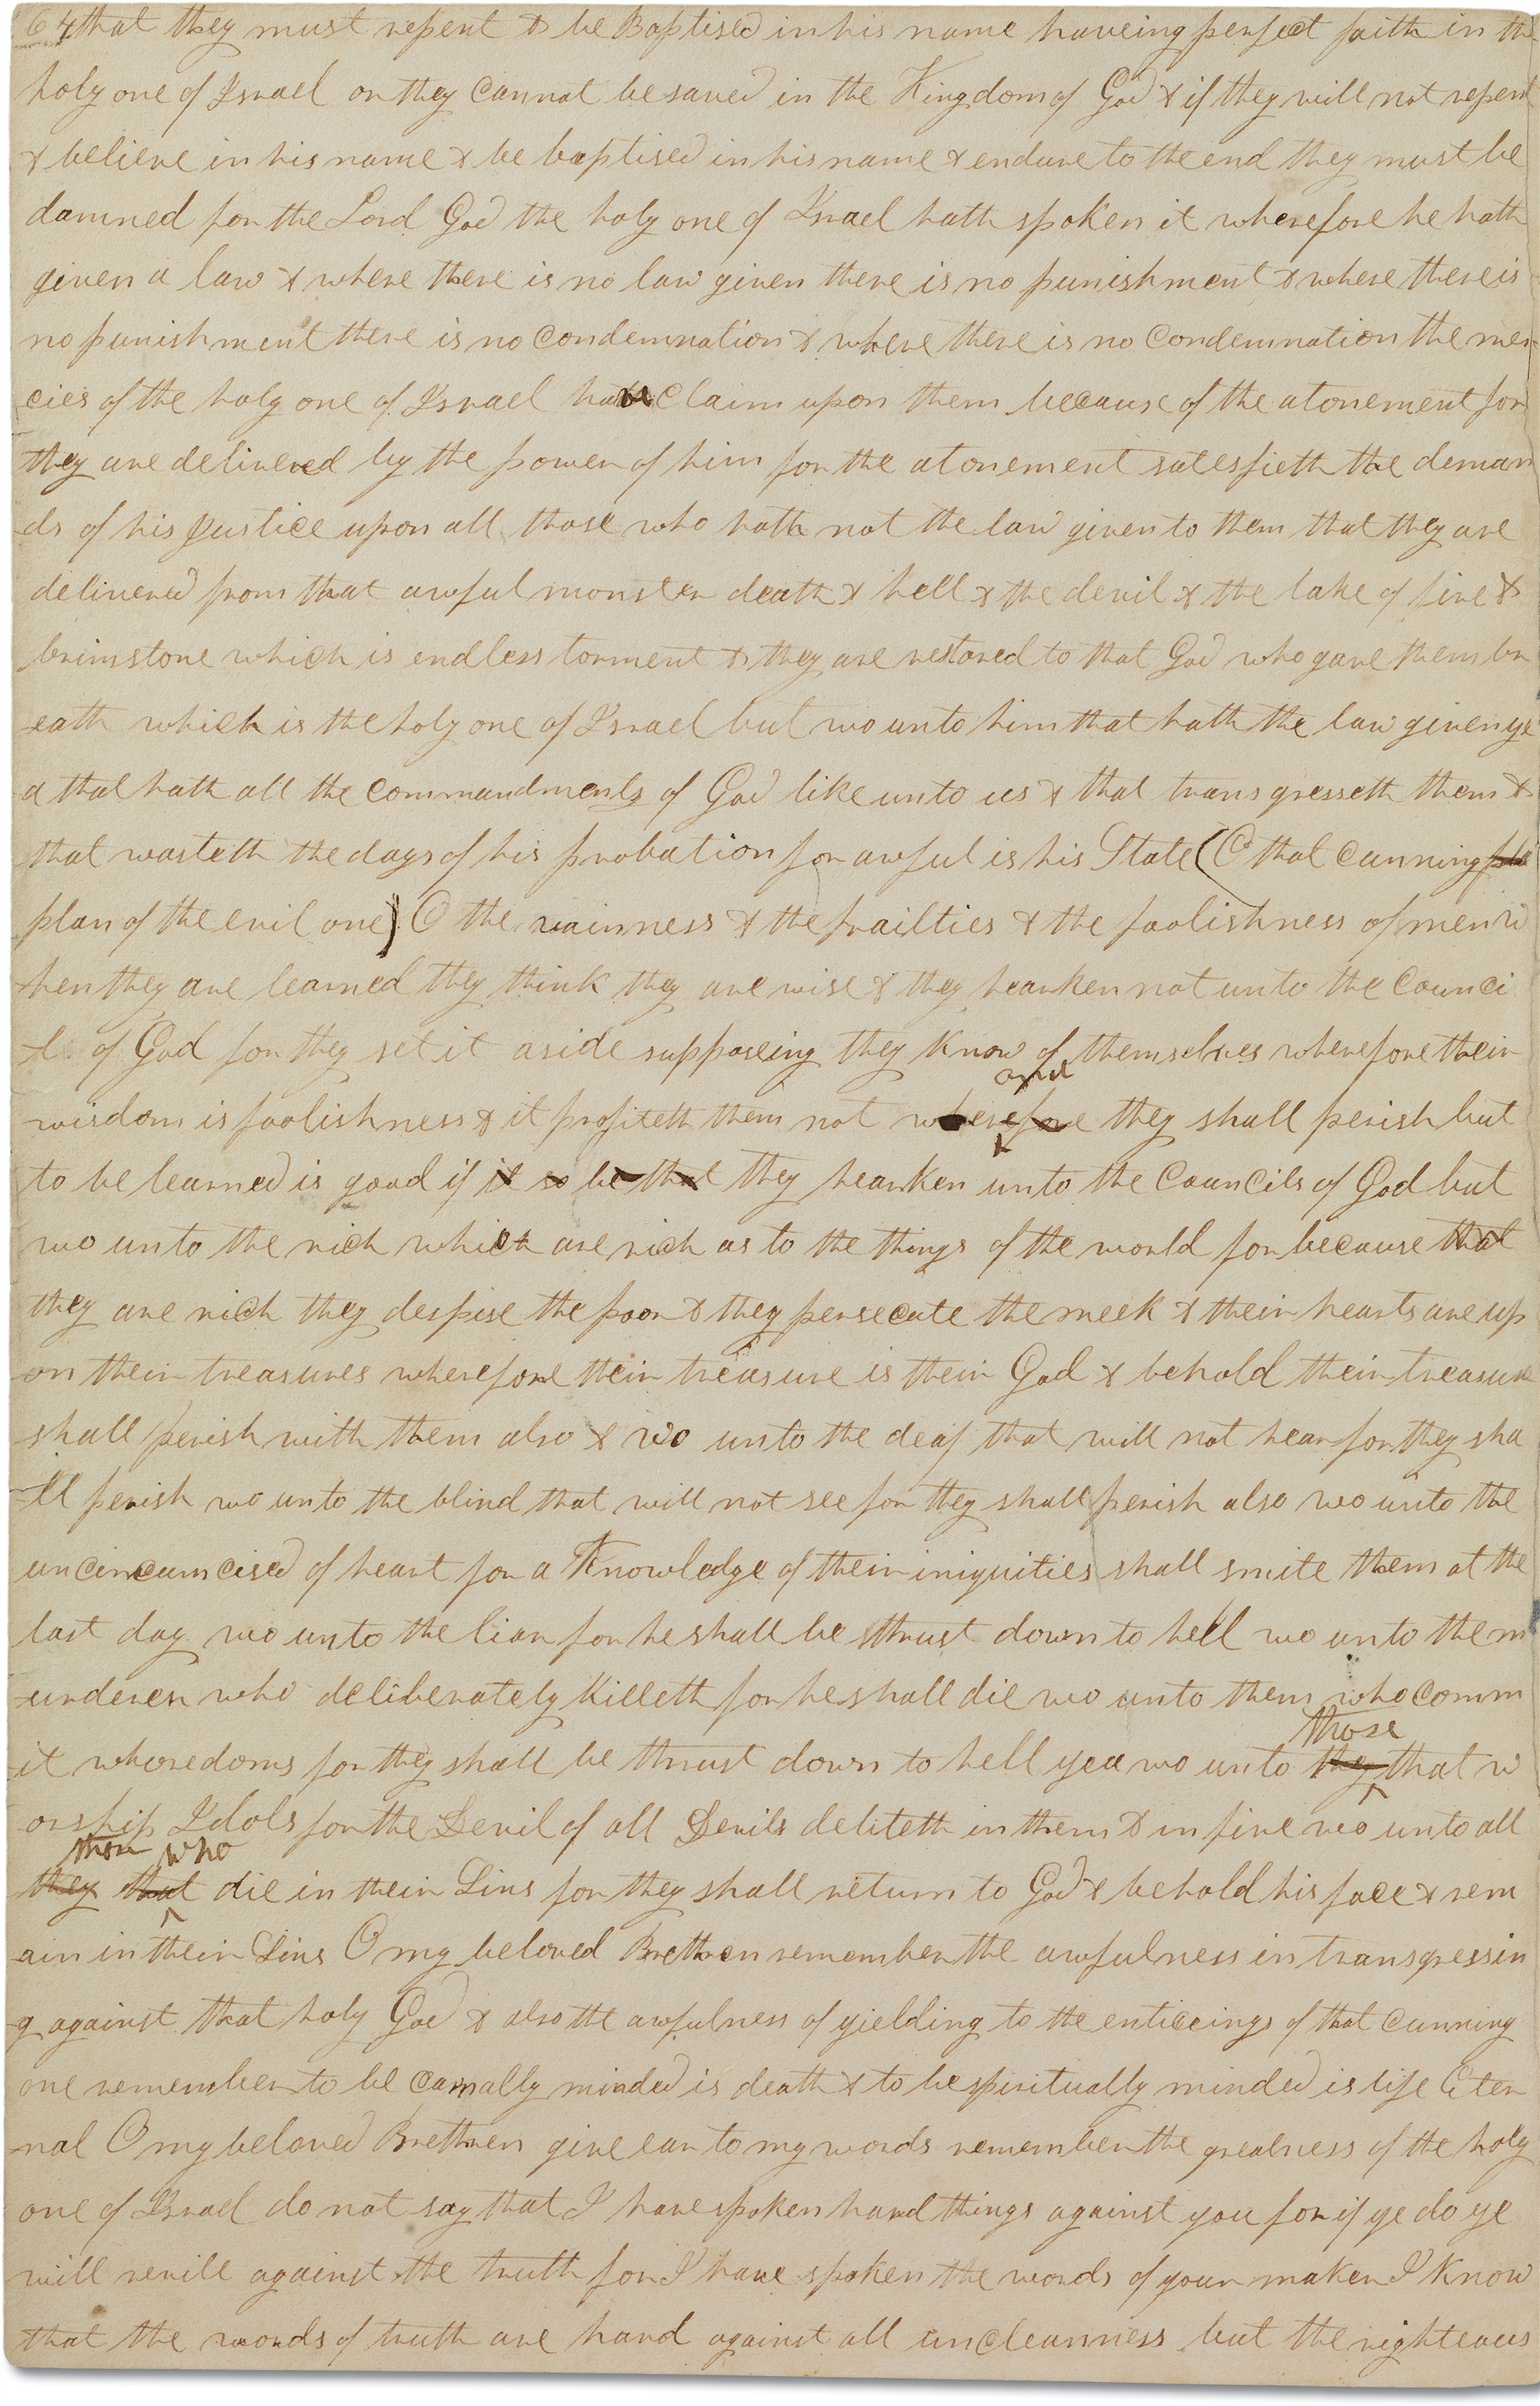 64 that they must repent & be Baptised in his name haveing perfect faith in the
holy one of Israel or they cannot be saved in the Kingdom of God & if they will not repent
& believe in his name & be baptised in his name & endure to the end they must be
damned for the Lord God the holy one of Israel hath spoken it wherefore he hath
given a law & where there is no law given there is no punishment & where there is
no punishment there is no condemnation & where there is no condemnation the mer-
cies of the holy one of Israel have claim upon them because of the atonement for
they are delivered by the power of him for the atonement satesfieth the deman
ds of his Justice upon all those who hath not the law given to them that they are
delivered from that awful monster death & hell & the devil & the lake of fire &
brimstone which is endless torment & they are restored to that God who gave them br
eath which is the holy one of Israel but wo unto him that hath the law given ye
a that hath all the commandments of God like unto us & that transgresseth them &
that wasteth the days of his probation for awful is his State (O that cunning pla
plan of the evil one) O the vainness & the frailties & the foolishness of men w
hen they are learned they think they are wise & they hearken not unto the counci
l of God for they set it aside supposeing they know of themselves wherefore their
and
wisdom is foolishness & it profiteth them not wherefore they shall perish but
to be learned is good if it so be that they hearken unto the councils of God but
wo unto the rich which are rich as to the things of the world for because that
they are rich they despise the poor & they persecute the meek & their hearts are up
on their treasures wherefore their treasure is their God & behold their treasure
shall perish with them also & wo unto the deaf that will not hear for they sha
ll perish wo unto the blind that will not see for they shall perish also wo unto the
uncircumcised of heart for a Knowledge of their iniquities shall smite them at the
last day wo unto the liar for he shall be thrust down to hell wo unto the m
urderer who deliberately killeth for he shall die wo unto them who comm
those
it whoredoms for they shall be thrust down to hell yea wo unto they that w
orship Idols for the Devil of all Devils deliteth in them & in fine wo unto all
those who
they that die in their Sins for they shall return to God & behold his face & rem
ain in their Sins O my beloved Brethren remember the awfulness in transgressin
g against that holy God & also the awfulness of yielding to the enticeings of that cunning
one remember to be carnally minded is death & to be spiritually minded is life Eter
nal O my beloved Brethren give ear to my words remember the greatness of the holy
one of Israel do not say that I have spoken hard things against you for if ye do ye
will revile against the truth for I have spoken the words of your maker I know
that the words of truth are hard against all uncleanness but the righteous